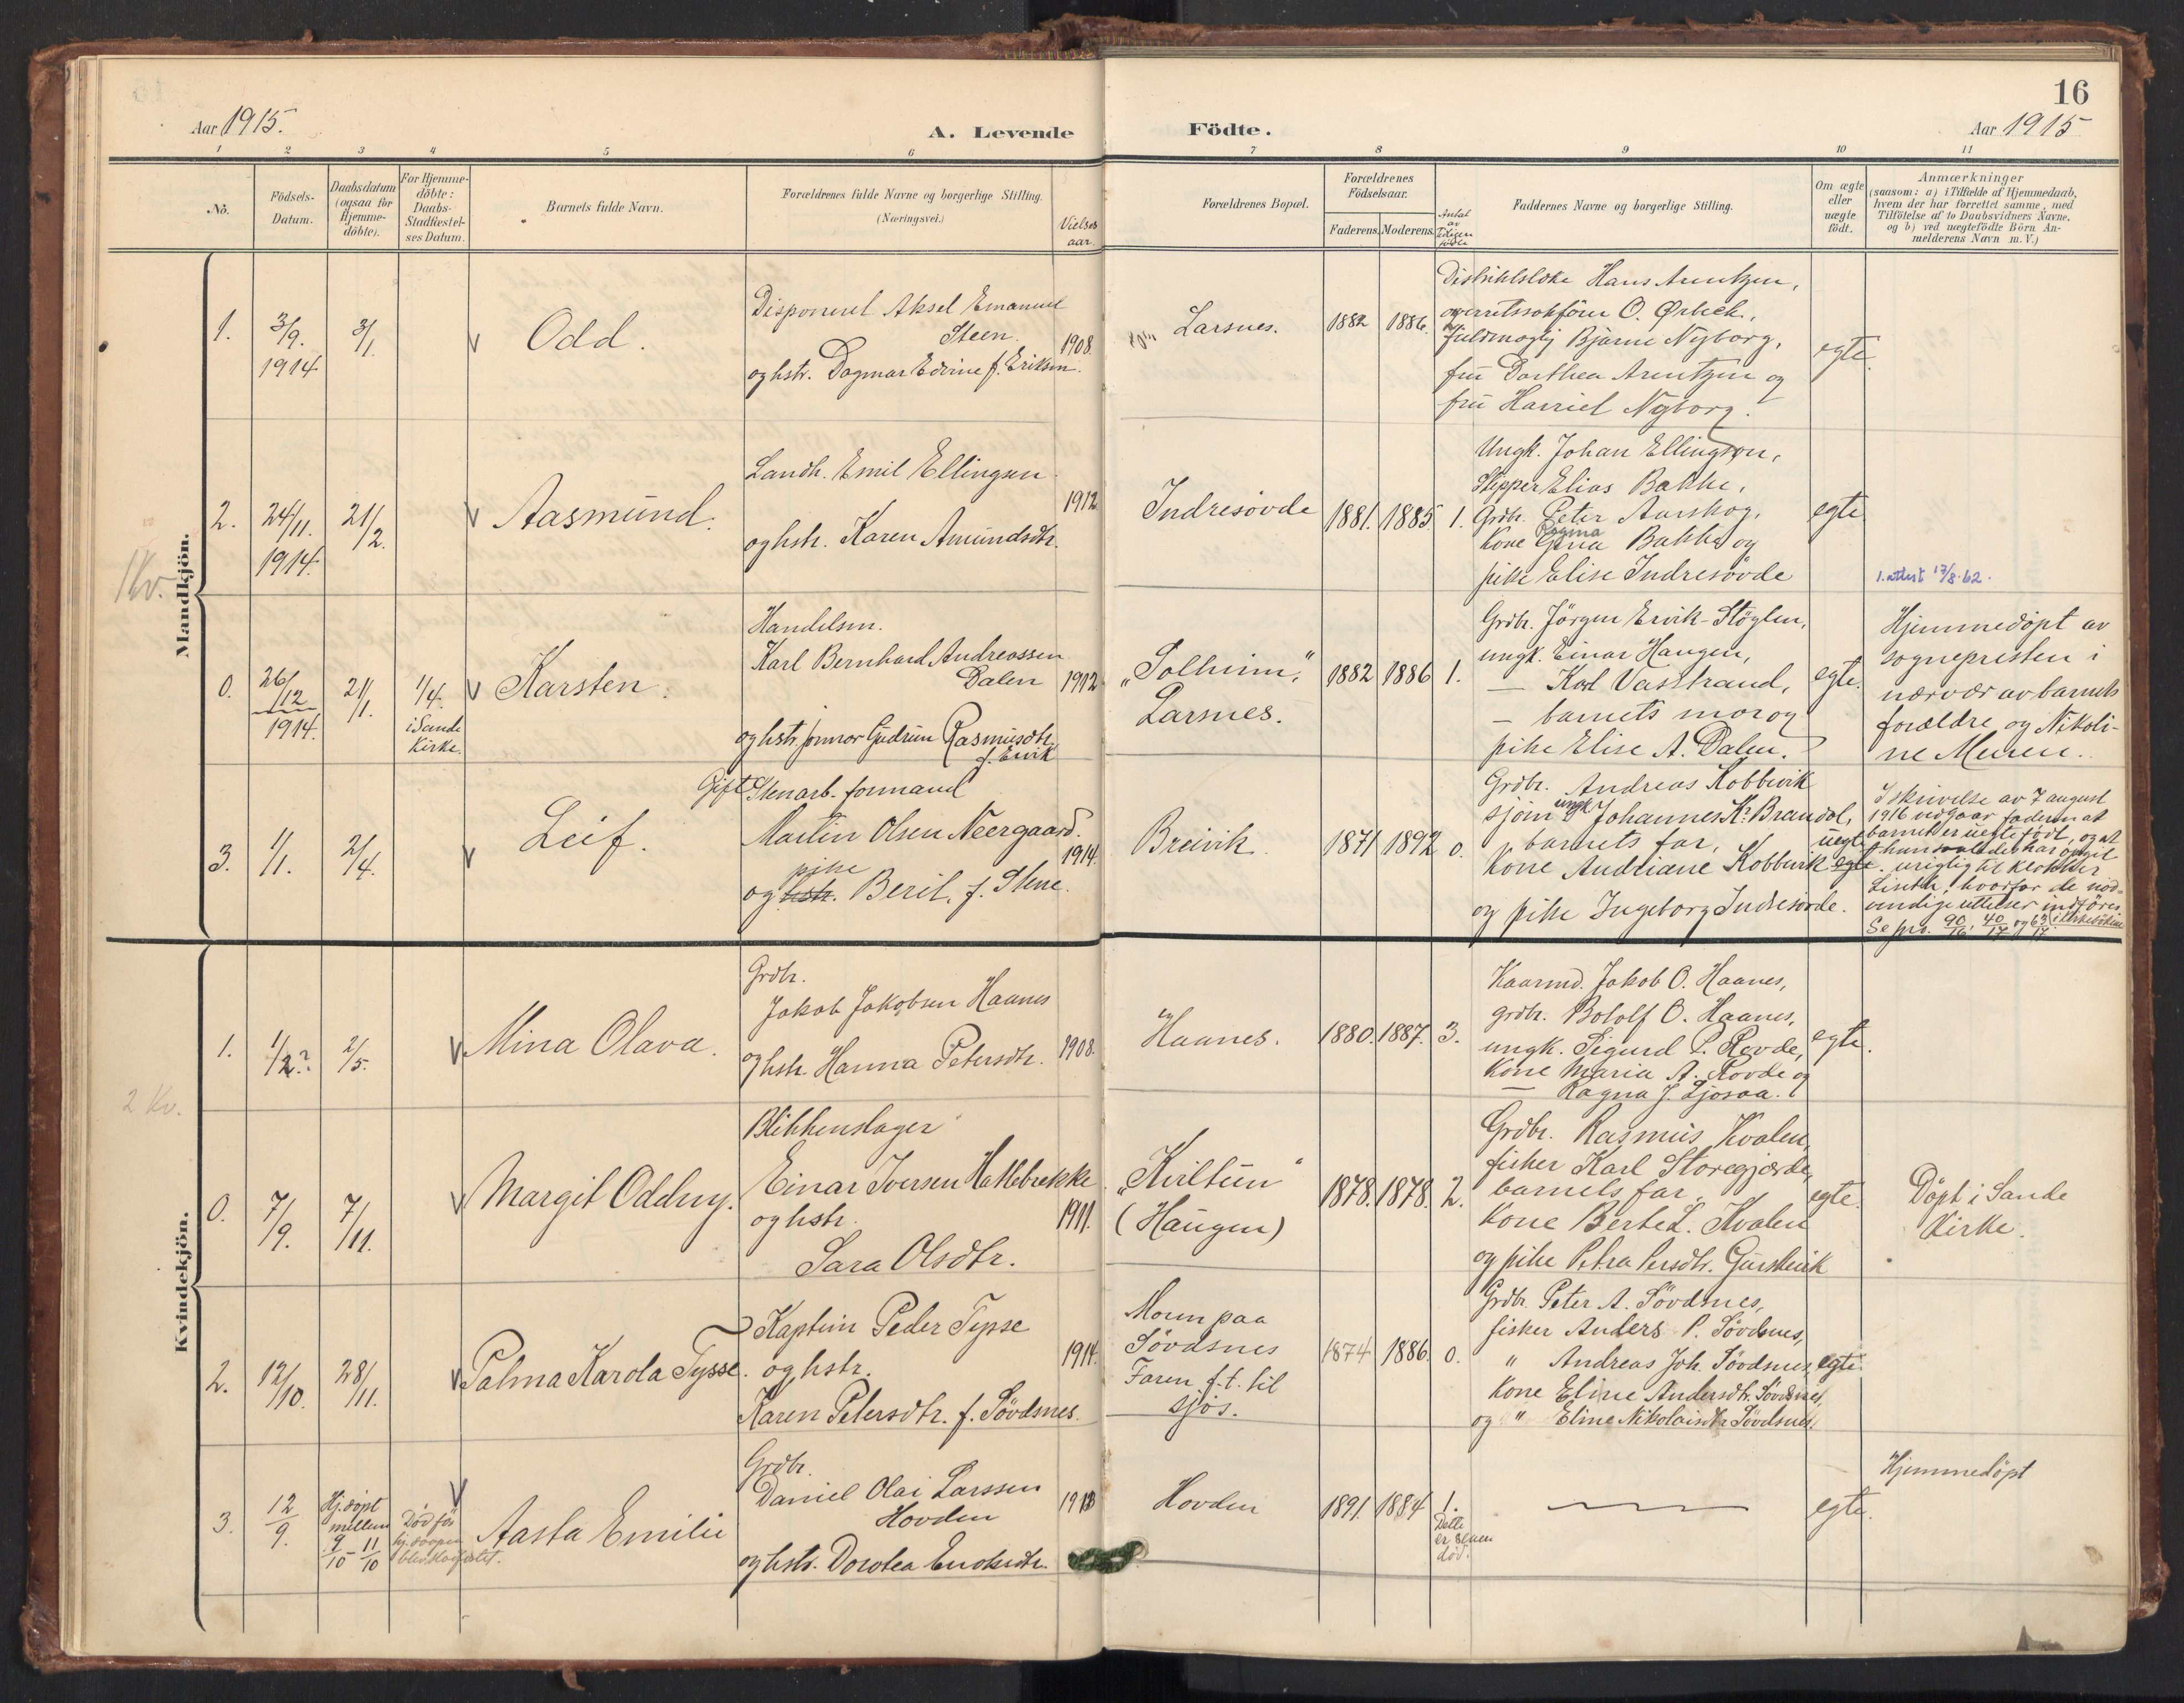 16
Aar 1915.
A. Levende
Födte.
Aar 1915
1 2 3 4 5 6 7 8 9 10 11
No.
Födsels-
Datum.
Daabsdatum
(ogsaa for
Hjemme-
döbte).
For Hjemme-
döbte:
Daabs-
Stadfestel-
ses Datum.
Barnets fulde Navn.
Forældrenes fulde Navne og borgerlige Stilling.
(Næringsvei.)
Vielses
aar.
Forældrenes Bopæl.
Forældrenes
Födselsaar.
Faderens. Moderens.
Antal
av
tidligere
Faddernes Navne og borgerlige Stilling.
Om ægte
eller
uægte
födt.
Anmærkninger
(saasom: a) i Tilfælde af Hjemmedaab,
hvem der har forrettet samme, med
Tilföielse af to Daabsvidners Navne,
og b) ved uægtefödte Börn An-
melderens Navn m. V.)
Mandkjön.
1 Kv.
1.
3/9.
1914
3/1
Odd.
Disponent Aksel Emanuel
Steen
og hstr. Dagmar Edvine f. Eriksen.
1908.
Larsnes.
1882
1886.
Distriktslæke Hans Arentzen,
overretssakförer O. Ørbeck,
fuldmægtig Bjarne Nyborg,
fru Dorthea Arentzen og
fru Harriet Nyborg.
egte.
2.
24/11.
1914.
21/2.
Aasmund.
Landh. Emil Ellingsen
og hstr. Karen Amundsdtr.
1912
Indresövde
1881.
1885
1.
Ungk. Johan Ellingsen,
Skipper Elias Bakke,
Grdbr. Peter Aarskog,
Kone Gina Bakke og
pike Elise Indresövde
egte
1. attest 17/8.62.
0.
26/12
1914.
21/1.
1/4.
i Sande
Kirke.
Karsten.
Handelsm.
Karl Bernhard Andreassen
Dalen
og hstr. Gudrun Rasmusdtr.
f. Ervik
1912
"Solheim",
Larsnes.
1882
1886
1.
Grdbr. Jörgen Ervik-Stöylen,
ungk. Einar Haugen,
— Karl Vasstrand,
— barnets mor og
pike Elise A. Dalen.
egte.
Hjemmedöpt av
sognepresten i
nærvær av barnets
forældre og Nikoli-
ne Muren.
3.
1/1.
2/4.
Leif.
Gift Stenarb. formand
Martin Olsen Neergaard.
pike
og hstr. Beril, f. Stene.
1914.
Breivik
1871
1892
0.
Grdbr. Andreas Kobbevik
ungk.
sjöm. Johannes K. Brandal,
barnets far,
Kone Andriane Kobbevik
og pike Ingeborg Indresövde.
uegte
egte.
I skrivelse av 7 august
1916 udgaar faderen at
barnet er uegte födt, og at
han har opgit
urigtig til klokker
Linth, hvorfor de nöd-
vendige rettelser indföres
Se prs. 90/16, 40/17 og 63/17.
Kvindekjön.
2 Kv.
1.
1/2?
2/5.
Mina Olava.
Grdbr.
Jakob Jakobsen Haanes
og hstr. Hanna Petersdtr.
1908.
Haanes.
1880.
1887.
3.
Kaarmd. Jakob O. Haanes,
grdbr. Bololf O. Haanes,
ungk. Sigurd P. Rovde,
Kone Maria A. Rovde og
— Ragna J. Ljosaa.
egte.
0.
7/9.
7/11.
Margit Oddny.
Blikkenslager
Einar Iversen Hatlebrekke
og hstr.
Sara Olsdtr.
1911.
"Kviltun"
(Haugen)
1878.
1878.
2.
Grdbr. Rasmus Kvalen,
fisker Karl Storegjærde,
barnets far,
Kone Berte L. Kvalen
og pike Petra Persdtr. Gurskevik
egte.
Döpt i Sande
Kirke.
2.
12/10.
28/11.
Palma Karola Tysse.
Kaptein Peder Tysse
og hstr.
Karen Petersdtr. f. Sövdsnes.
1914.
Moren paa
Sövdsnes
Faren f. t. til
sjös.
1874
1886.
0.
Grdbr. Peter A. Sövdsnes,
fisker Anders P. Sövdsnes,
" Andreas Joh. Sövdsnes,
Kone Eline Andersdtr. Sövdsnes,
og " Eline Nikolaisdtr Sövdsnes.
egte.
3.
12/9.
Hj.döpt
mellem
9/10 - 11/10
Död för
hj.daapen
blev stadfæstet.
Aasta Emilie
Grdbr.
Daniel Olai Larssen
Hovden
og hstr. Dorotea Enoksdtr.
1913
Hovden
1891.
1884
1.
Dette
er
död.
egte.
Hjemmedöpt